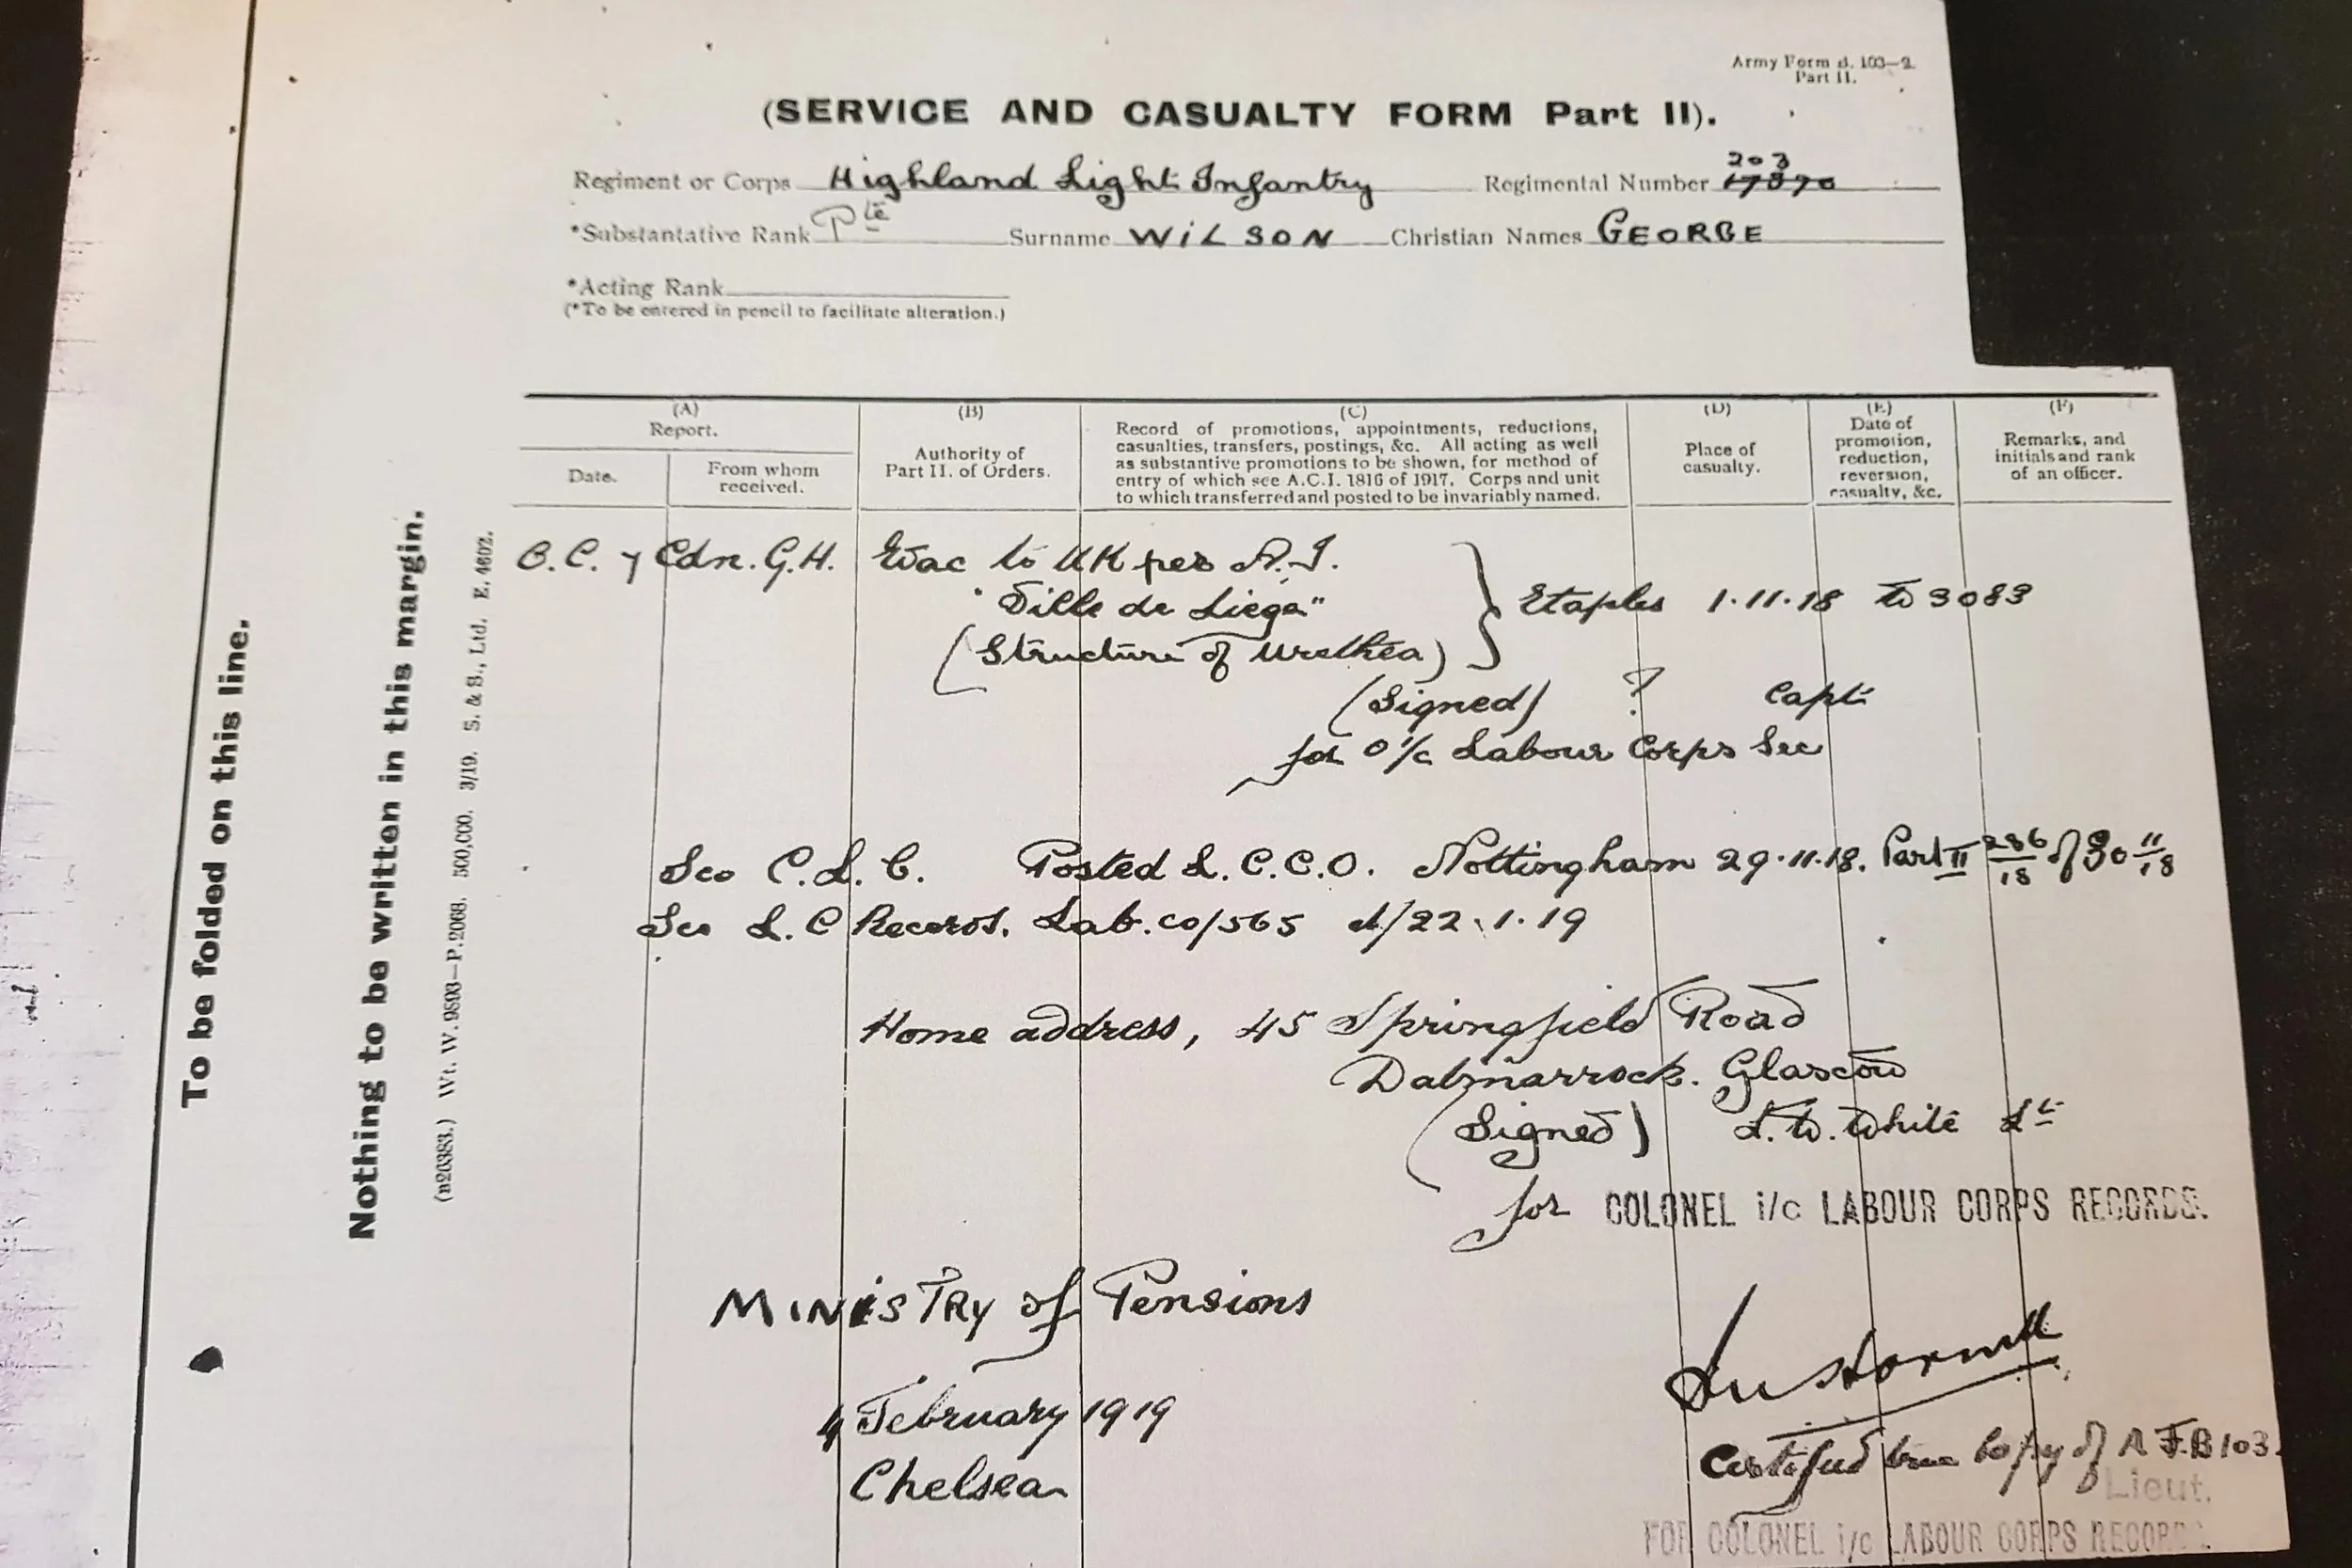 Army Form B. 103—2.
Part II.
(SERVICE AND CASUALTY FORM Part II).
Regiment or Corps Highland Light Infantry Regimental Number 203 17870
*Substantative Rank Pte Surname WILSON Christian Names GEORGE
*Acting Rank
(*To be entered in pencil to facilitate alteration.)
(A)
Report.
Date.
From whom
received.
(B)
Authority of
Part II. of Orders.
(C)
Record of promotions, appointments, reductions,
casualties, transfers, postings, &c. All acting as well
as substantive promotions to be shown, for method of
entry of which see A.C.I. 1816 of 1917. Corps and unit
to which transferred and posted to be invariably named.
(D)
Place of
casualty.
(E)
Date of
promotion,
reduction,
reversion,
casualty, &c.
(F)
Remarks, and
initials and rank
of an officer.
O.C. 7 Cdn. G.H. Evac to UK per A.T.
"Ville de Liege"
(Structure of Urethea)
Etaples 1.11.18 to 3083
(Signed) ? Capt
for O i/c Labour Corps Sec
Sco C.L.C. Posted L.C.C.O. Nottingham 29.11.18. Part II 286/18 of 30 11/18
Sco L.C Records. Lab.co/565 d/22.1.19
Home address, 45 Springfield Road
Dalmarrock. Glascow
(Signed) L.W. White Lt
for COLONEL i/c LABOUR CORPS RECORDS.
MINISTRY of Pensions
4 February 1919
Chelsea
Certified true Copy of A.F.B103.
Lieut.
FOR COLONEL i/c LABOUR CORPS RECORDS.
To be folded on this line.
Nothing to be written in this margin.
(B20383.) Wt. W. 9593—P.2068. 500,000. 3/19. S. & S., Ltd. E. 4602.